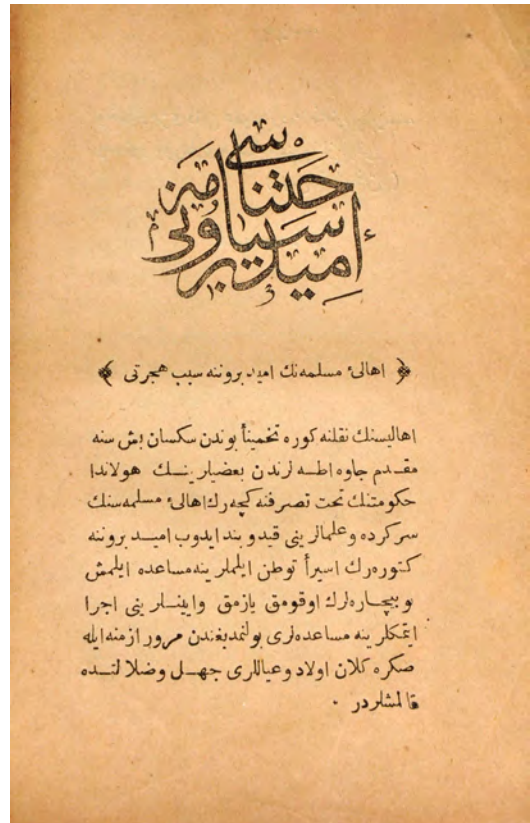 اميد بروني سياحتنامه سى
﴿ اهالئ مسلمه‌نك اميد بروننه سبب هجرتى ﴾
اهاليسنك نقلنه كوره تخميناً بوندن سكسان بش سنه
مقدم جاوه اطه لرندن بعضيلرينك هولاندا
حكومتنك تحت تصرفنه كچه‌رك اهالئ مسلمه‌سنك
سركرده و علمالرينى قيد و بند ايدوب اميد بروننه
كتوره‌رك اسيراً توطن ايلملرينه مساعده ايلمش
بو بيچاره‌لرك اوقومق يازمق و آيينلرينى اجرا
ايتمكلرينه مساعده‌لرى بولنمديغندن مرور ازمنه ايله
صكره كلان اولاد و عياللرى جهل و ضلالتده
قالمشلردر ٠